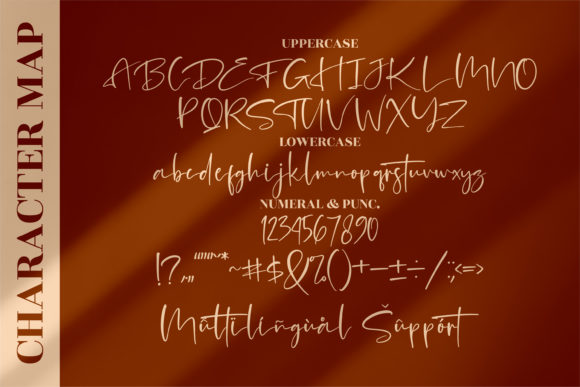 CHARACTER MAP
UPPERCASE
ABCDEFGHIJKLMNO
PQRSTUVWXYZ
LOWERCASE
abcdefghijklmnopqrstuvwxyz
NUMERAL & PUNC.
1234567890
!?,,,"“”~*~#$&%()+−±÷/:;<=>
Mûltïlíñgùål Šûppórt